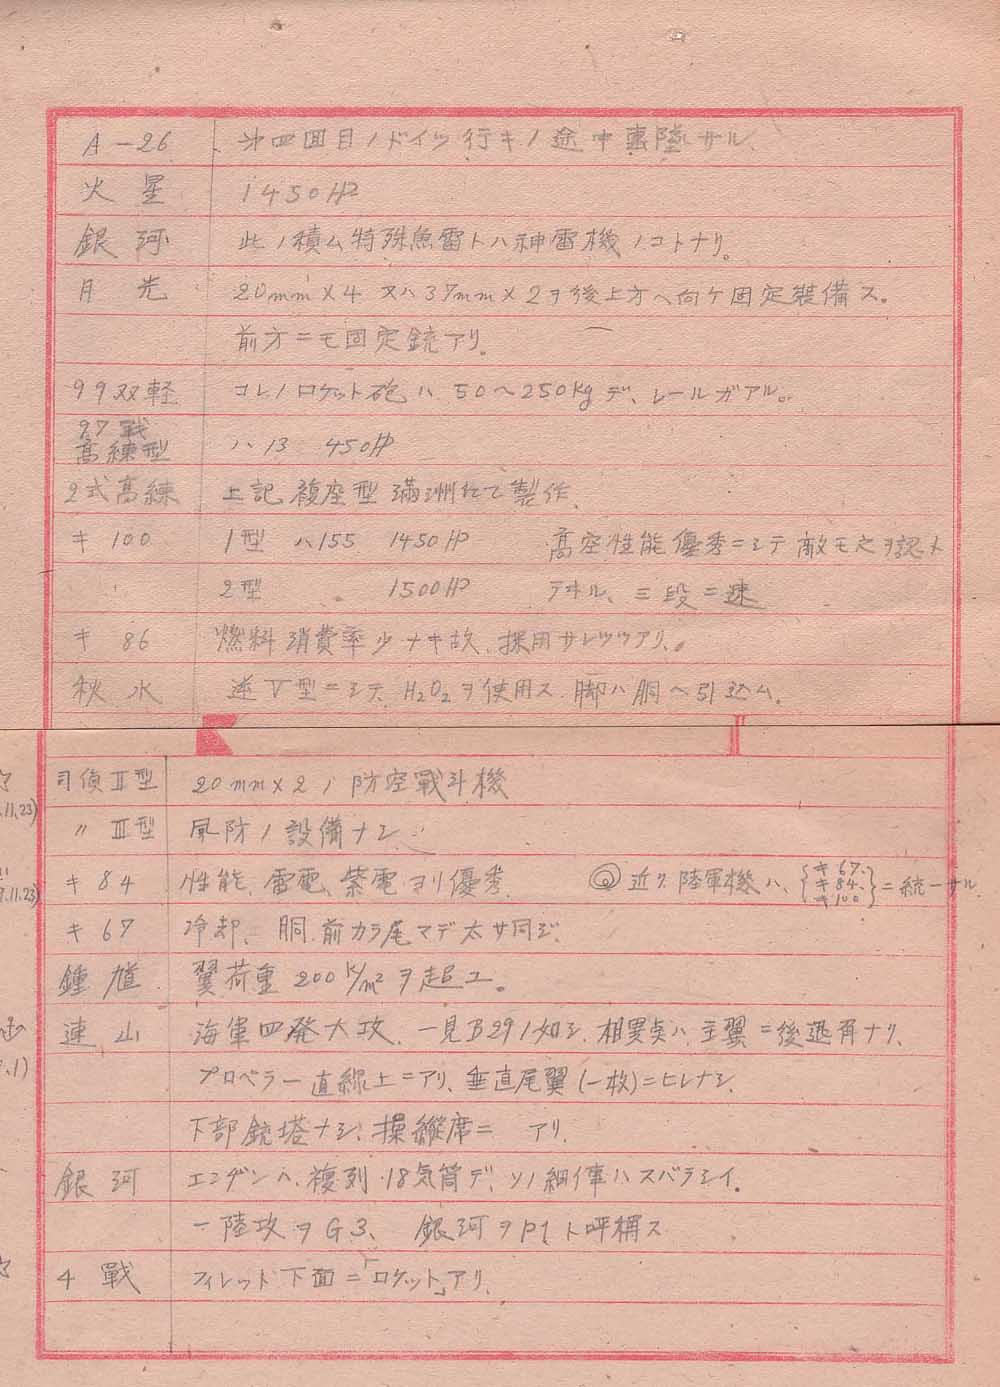 A-26 第四回目ノドイツ行キノ途中 陸サル、
火星 1450HP
銀河 此ノ積ム特殊魚雷トハ神雷機ノコトナリ。
月光 20mm×4 又ハ37mm×2ヲ後上方ヘ向ケ固定装備ス。
前方ニモ固定銃アリ。
99双軽 コレノロケット砲ハ 50〜250Kgデ、レールガアル。
97戦
高練型 ハ13 450HP
2式高練 上記 複座型 満洲ニテ製作、
キ100 1型 ハ155 1450HP 高空性能優秀ニシテ敵モ之ヲ認メ
〃 2型 〃 1500HP テヰル、三段二速
キ86 燃料消費率少ナキ故、採用サレツツアリ。
秋水 逆V型ニシテ、H₂O₂ヲ使用ス、脚ハ胴ヘ引込ム、
司偵Ⅱ型 20mm×2ノ防空戦斗機
.11.23)
〃 Ⅲ型 風防ノ設備ナシ、
キ84 性能、雷電、紫電ヨリ優秀、 ◎近ク陸軍機ハ、{キ67、キ84、キ100}ニ統一サル、
.11.23)
キ67 冷却、胴、前カラ尾マデ太サ同ジ、
鍾馗 翼荷重 200K/m²ヲ超エ。
連山 海軍四発大攻、一見B29ノ如シ、相異点ハ、主翼ニ後退角ナリ、
.1)
プロペラー直線上ニアリ、垂直尾翼(一枚)ニヒレナシ、
下部銃塔ナシ、操縦席ニ アリ、
銀河 エンヂンハ、複列・18気筒デ、ソノ細 ハスバラシイ。
一陸攻ヲG3、 銀河ヲP1ト呼称ス
4戦 フィレット下面ニ「ロケット」アリ、